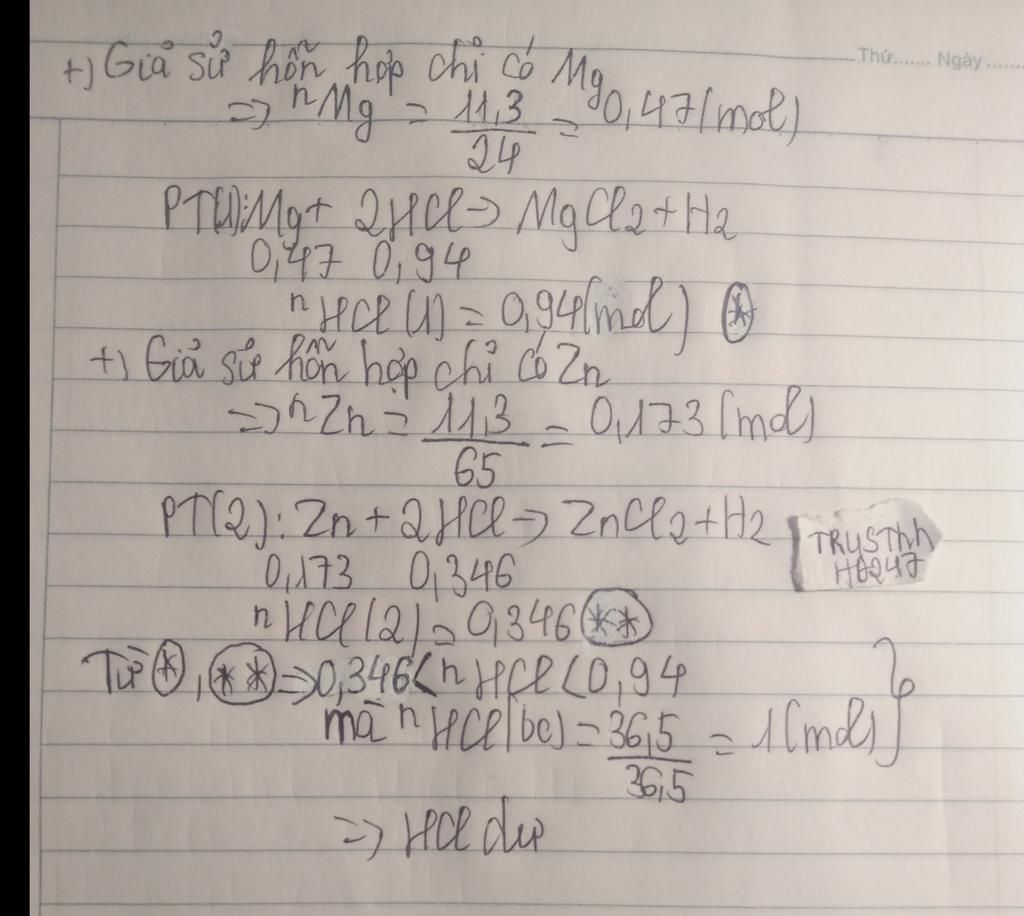 Thứ....... Ngày.......
+) Giả sử hỗn hợp chỉ có Mg
=> nMg = 11,3/24 = 0,47(mol)
PT(1):Mg+ 2HCl-> MgCl2+H2
0,47 0,94
nHCl(1)=0,94(mol) *
+) Giả sử hỗn hợp chỉ có Zn
=> nZn = 11,3/65 = 0,173(mol)
PT(2): Zn+2HCl-> ZnCl2+H2
TRUSThh
H6247
0,173 0,346
nHCl(2)=0,346 **
Từ *, ** =>0,346<nHCl<0,94
mà nHCl(bc)=36,5/36,5 = 1(mol)
=> HCl dư